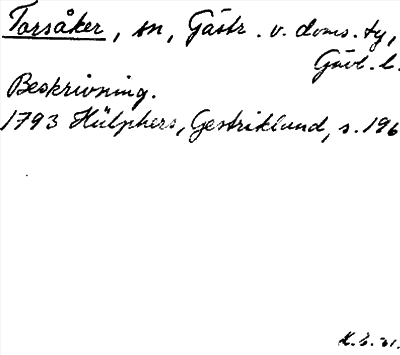 Torsåker, sn, Gästr. v. doms. tg,
Gävl. l.
Beskrivning.
1793 Hülphers, Gestrikland, s. 196